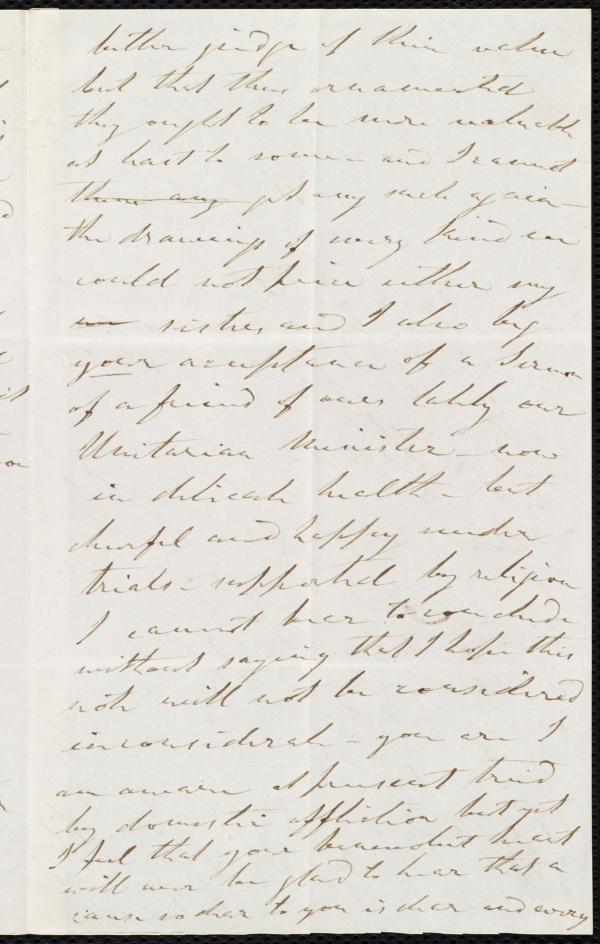 better judge of their value
but that thus ornamented
they ought to be more valuable
at least to some - and I cannot
there any get any such again -
the drawings of every kind we
could not price either my
sisters and I also beg
your acceptance of a Sermon
of a friend of ours lately our
Unitarian Minister - now
in delicate health - but
cheerful and happy under
trials - supported by religion
I cannot bear to conclude
without saying that I hope this
note will not be considered
inconsiderate - you are I
am aware at present tried
by domestic affliction but yet
I feel that your benevolent heart
will ever be glad to hear that a
cause so dear to you is dear and every